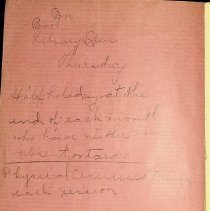 B
Bost
Library
Thursday
Half holiday at the
end of each month
who have neither
absent or tardy
Physical Exercises
each session